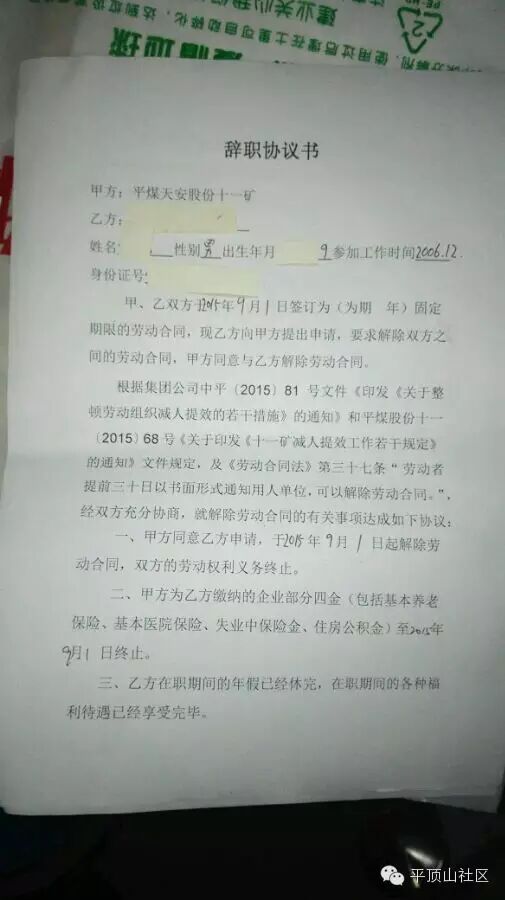 建业关心我
使用过后埋在土里可自动碎化，达到
辞职协议书
甲方：平煤天安股份十一矿
乙方：
姓名 性别 男 出生年月 9 参加工作时间2006.12.
身份证号
甲、乙双方于2015年9月1日签订为（为期 年）固定
期限的劳动合同，现乙方向甲方提出申请，要求解除双方之
间的劳动合同，甲方同意与乙方解除劳动合同。
根据集团公司中平〔2015〕81 号文件《印发《关于整
顿劳动组织减人提效的若干措施》的通知》和平煤股份十一
〔2015〕68 号《关于印发《十一矿减人提效工作若干规定》
的通知》文件规定，及《劳动合同法》第三十七条“ 劳动者
提前三十日以书面形式通知用人单位，可以解除劳动合同。”，
经双方充分协商，就解除劳动合同的有关事项达成如下协议：
一、甲方同意乙方申请，于2015年 9月 1 日起解除劳
动合同，双方的劳动权利义务终止。
二、甲方为乙方缴纳的企业部分四金（包括基本养老
保险、基本医院保险、失业中保险金、住房公积金）至2015年
9月1 日终止。
三、乙方在职期间的年假已经休完，在职期间的各种福
利待遇已经享受完毕。
平顶山社区